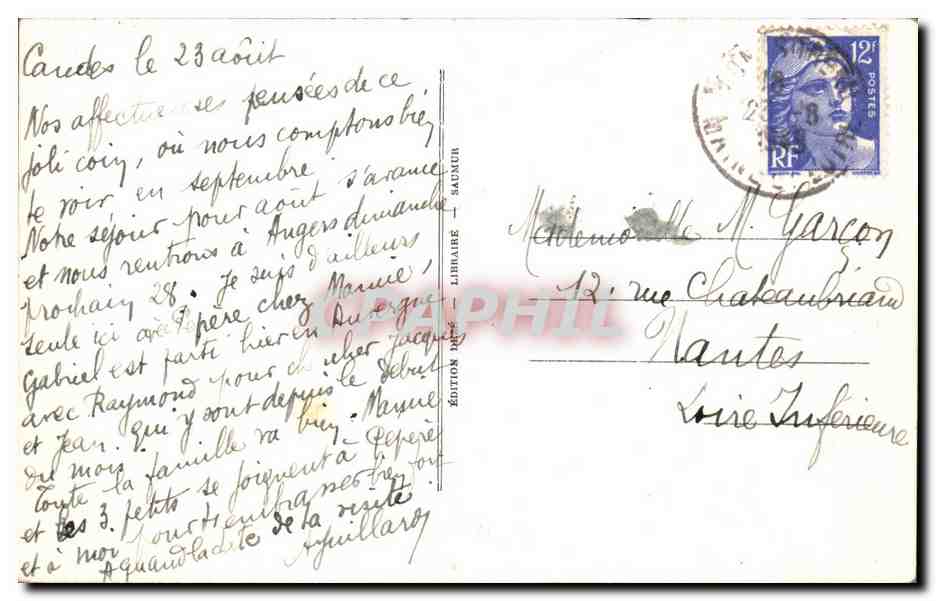 Candes le 23 août
Nos affectueuses pensées de ce
joli coin, où nous comptons bien
te voir en septembre.
Notre séjour pour août s'avance
et nous rentrons à Angers dimanche
prochain 28. Je suis d'ailleurs
seule ici avec Pépère chez Manne,
Gabriel est parti hier en Auvergne
avec Raymond pour chercher Jacques
et Jean qui y sont depuis le début
du mois.
Toute la famille va bien. Manne
et les 3 petits se joignent à Pépère
et à moi pour t'embrasser bien fort
A quand la date de la visite
AGuillard
ÉDITION DE LÉ — LIBRAIRE — SAUMUR
12F
POSTES
RF
MAINE
Mademoiselle M. Garçon
12 rue Chateaubriand
Nantes
Loire Inférieure
CPAPHIL